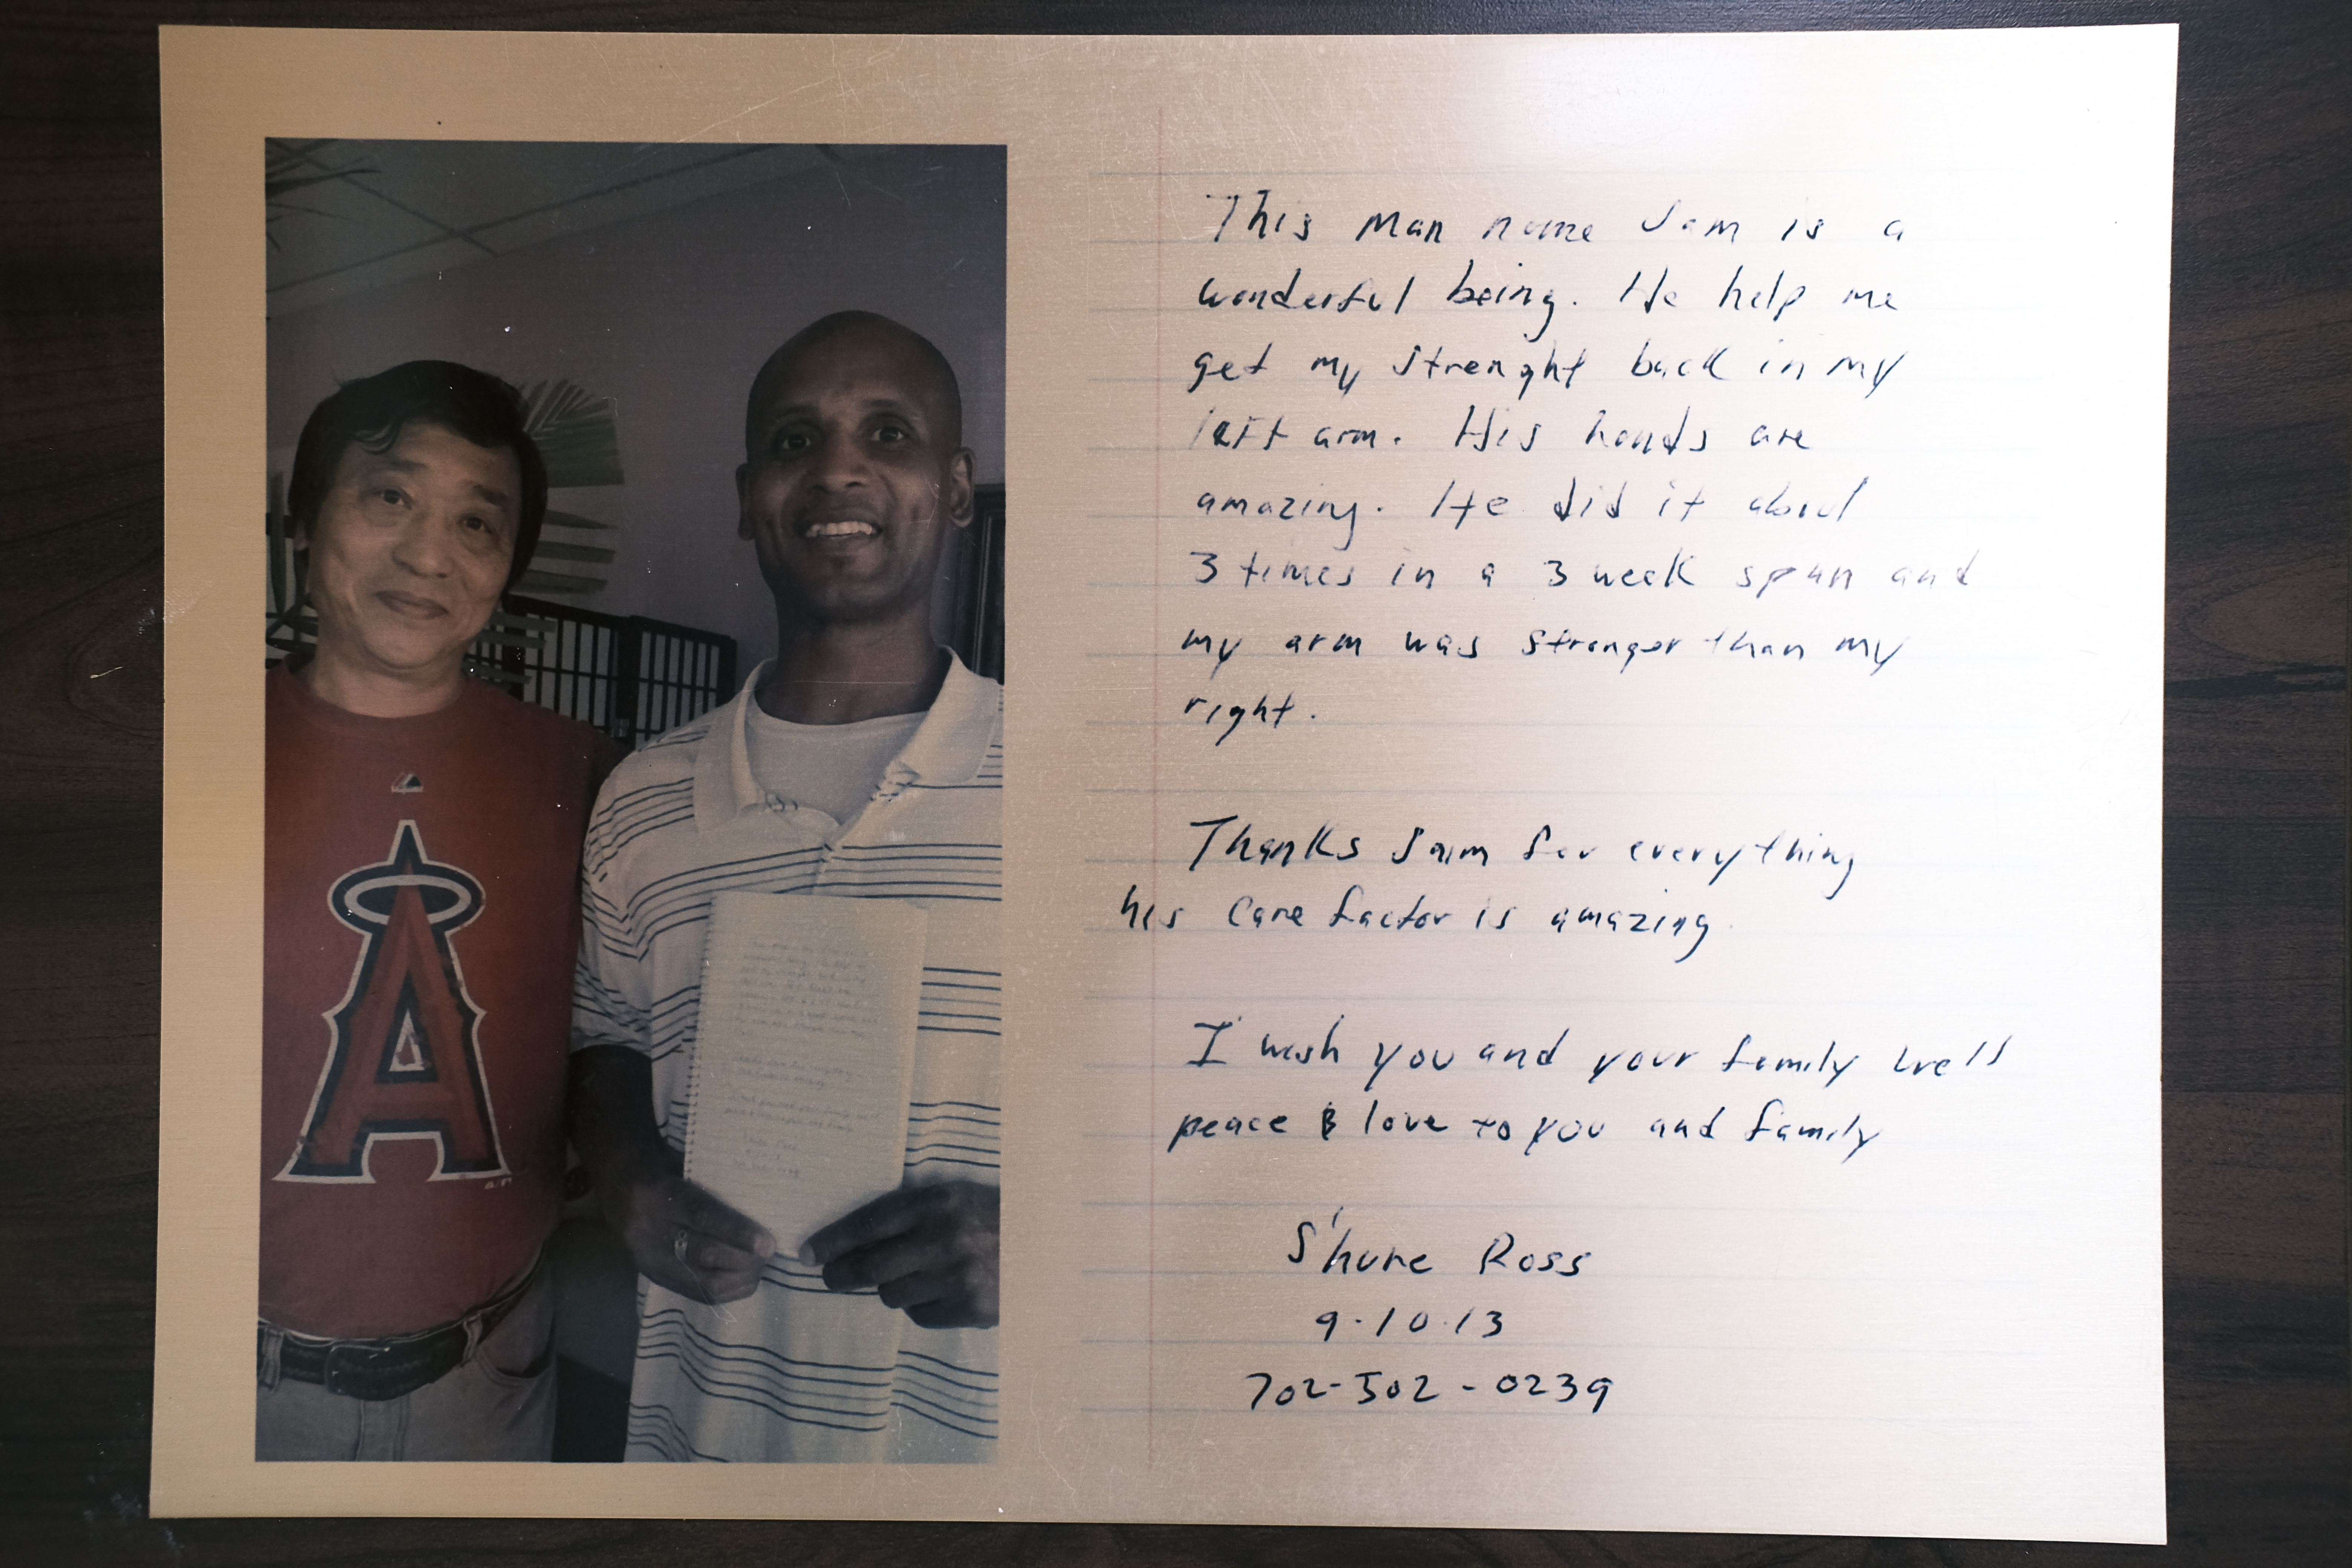 This Man name Sam is a
wonderful being. He help me
get my strenght back in my
left arm. His hands are
amazing. He did it about
3 times in a 3 week span and
my arm was stronger than my
right.
Thanks Sam for everything
his care factor is amazing
I wish you and your family well
peace & love to you and family
S'hure Ross
9-10-13
702-502-0239
A